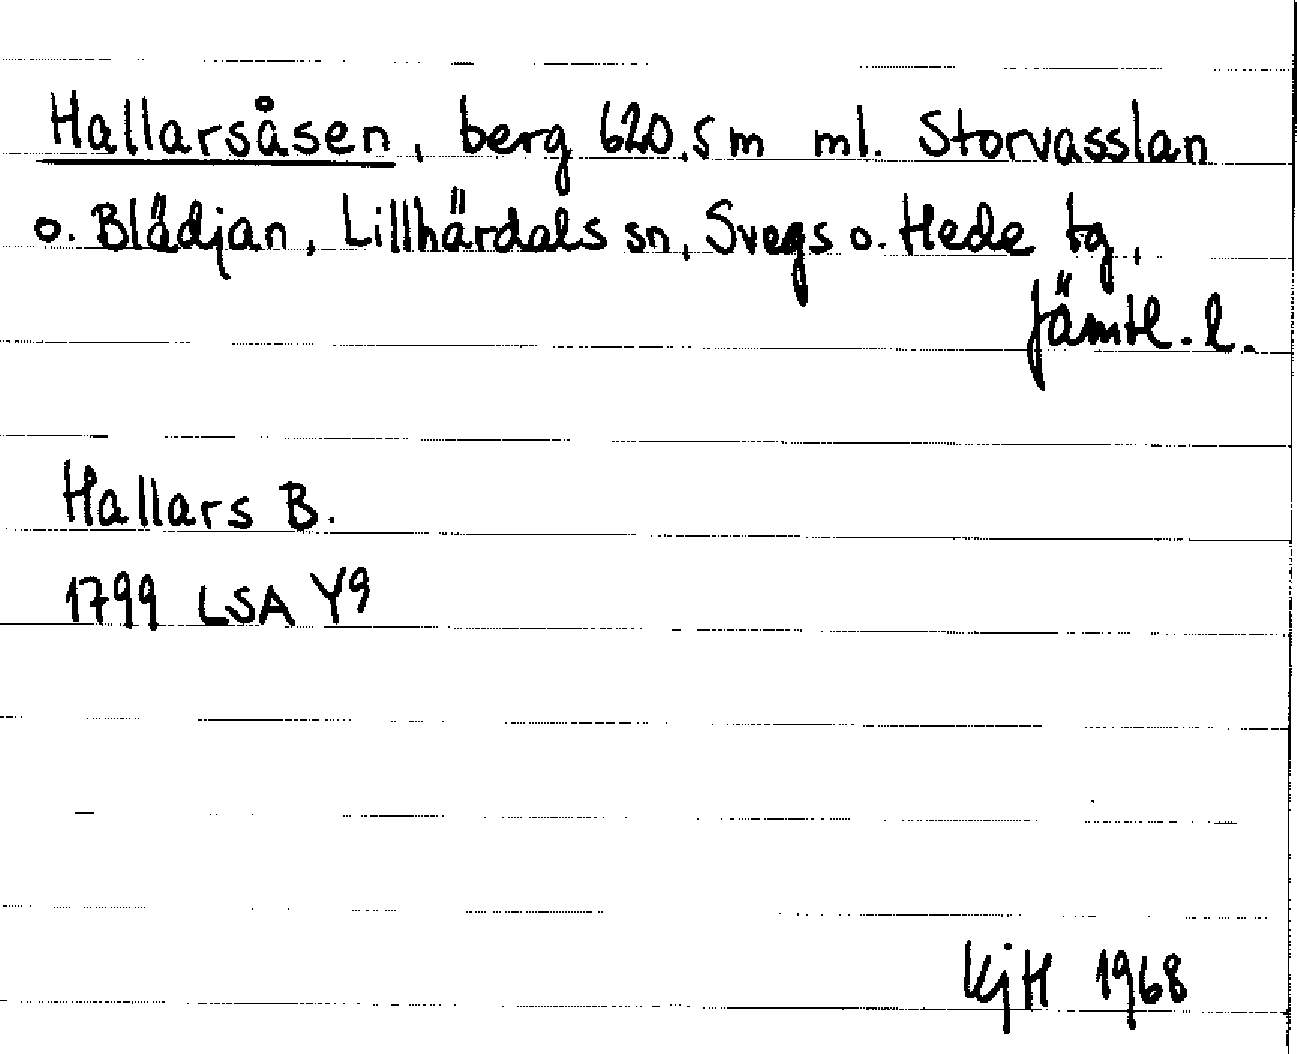 Hallarsåsen, berg 620,5 m ml. Storvasslan
o. Blädjan, Lillhärdals sn, Svegs o. Hede tg,
Jämtl. l.
Hallars B.
1799 LSA Y9
KjH 1968